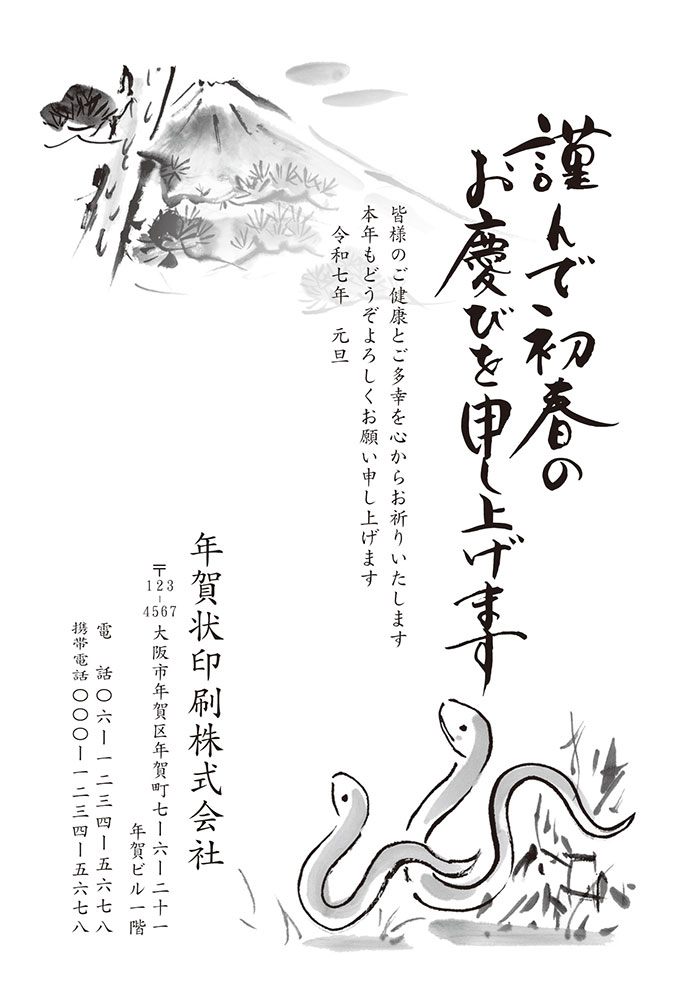 謹んで初春の
お慶びを申し上げます
皆様のご健康とご多幸を心からお祈りいたします
本年もどうぞよろしくお願い申し上げます
令和七年　元旦
年賀状印刷株式会社
〒123-4567 大阪市年賀区年賀町七ー六ー二十一
年賀ビル一階
電　話〇六ー一二三四ー五六七八
携帯電話〇〇〇ー一二三四ー五六七八